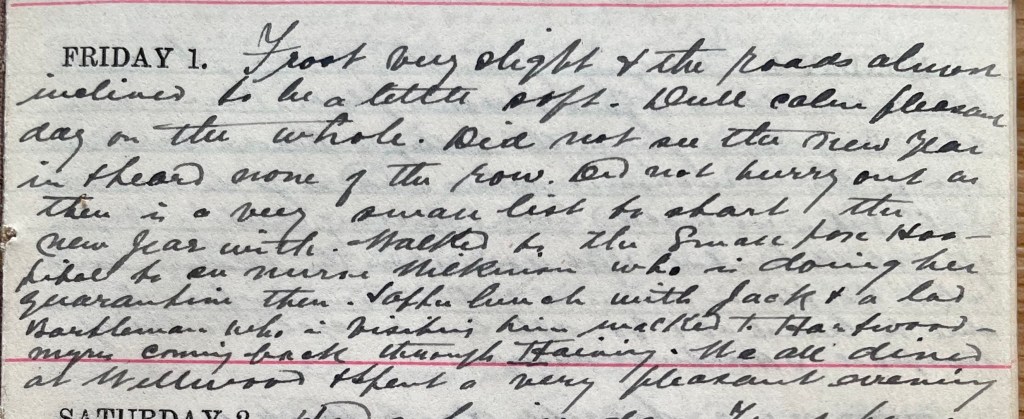 FRIDAY 1. Frost very slight & the roads almost
inclined to be a little soft. Dull calm pleasant
day on the whole. Did not see the New Year
in & heard none of the row. Did not hurry out as
there is a very small list to start the
new year with. Walked to the Small pox Hos-
pital to see nurse Wilkinson who is doing her
quarantine there. after lunch with Jack & a lad
Bartleman who is visiting him walked to Hartwood-
myres coming back through Haining. We all dined
at Wellwood & spent a very pleasant evening
SATURDAY 2.